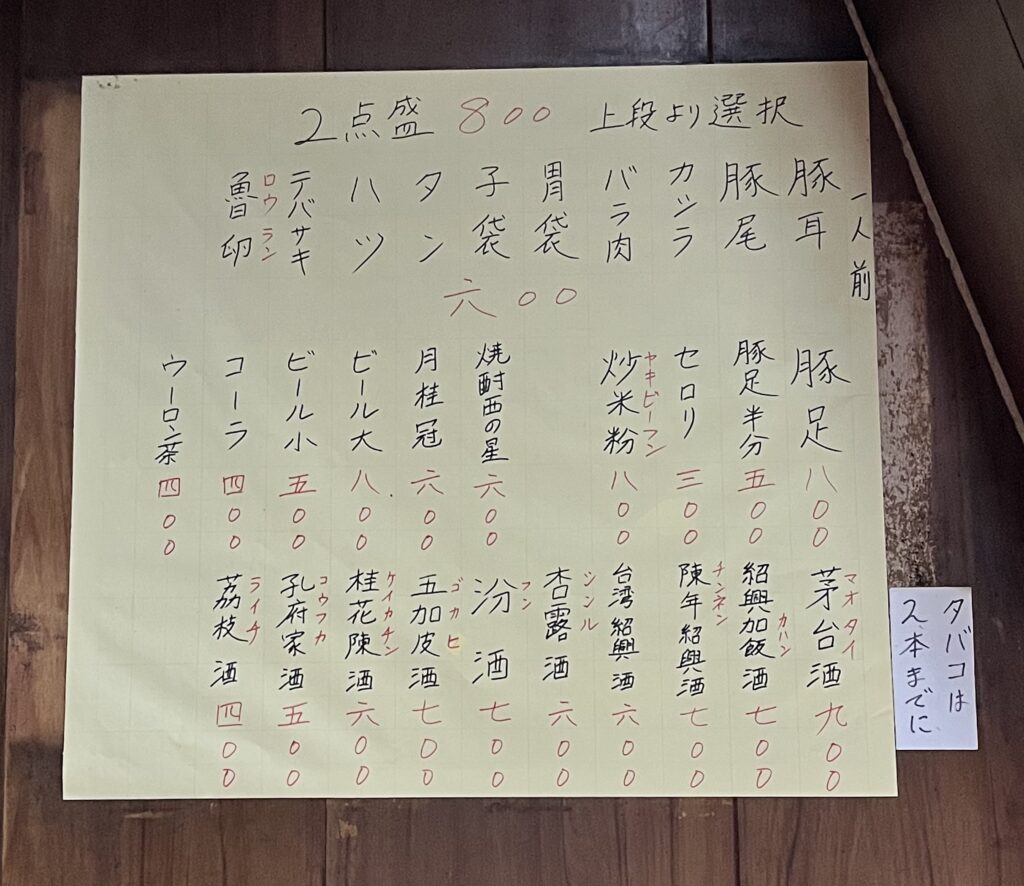 2点盛 800 上段より選択
一人前
豚耳
豚尾
カシラ
バラ肉
胃袋
子袋
タン
ハツ
テバサキ
魯卵 ロウラン
六00
豚足 八00
豚足半分 五00
セロリ 三00
炒米粉 ヤキビーフン 八00
焼酎西の星 六00
月桂冠 六00
ビール大 八00
ビール小 五00
コーラ 四00
ウーロン茶 四00
茅台酒 マオタイ 九00
紹興加飯酒 カハン 七00
陳年紹興酒 チンネン 七00
台湾紹興酒 六00
杏露酒 シンル 六00
汾酒 フン 七00
五加皮酒 ゴカヒ 七00
桂花陳酒 ケイカチン 六00
孔府家酒 コウフカ 五00
茘枝酒 ライチ 四00
タバコは
2本までに